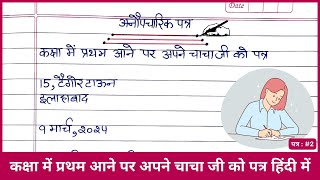 Date
अनौपचारिक पत्र
कक्षा में प्रथम आने पर अपने चाचाजी को पत्र
15, टैगोर टाऊन
इलाहाबाद
१ मार्च, २०२५
पत्र : #2
कक्षा में प्रथम आने पर अपने चाचा जी को पत्र हिंदी में